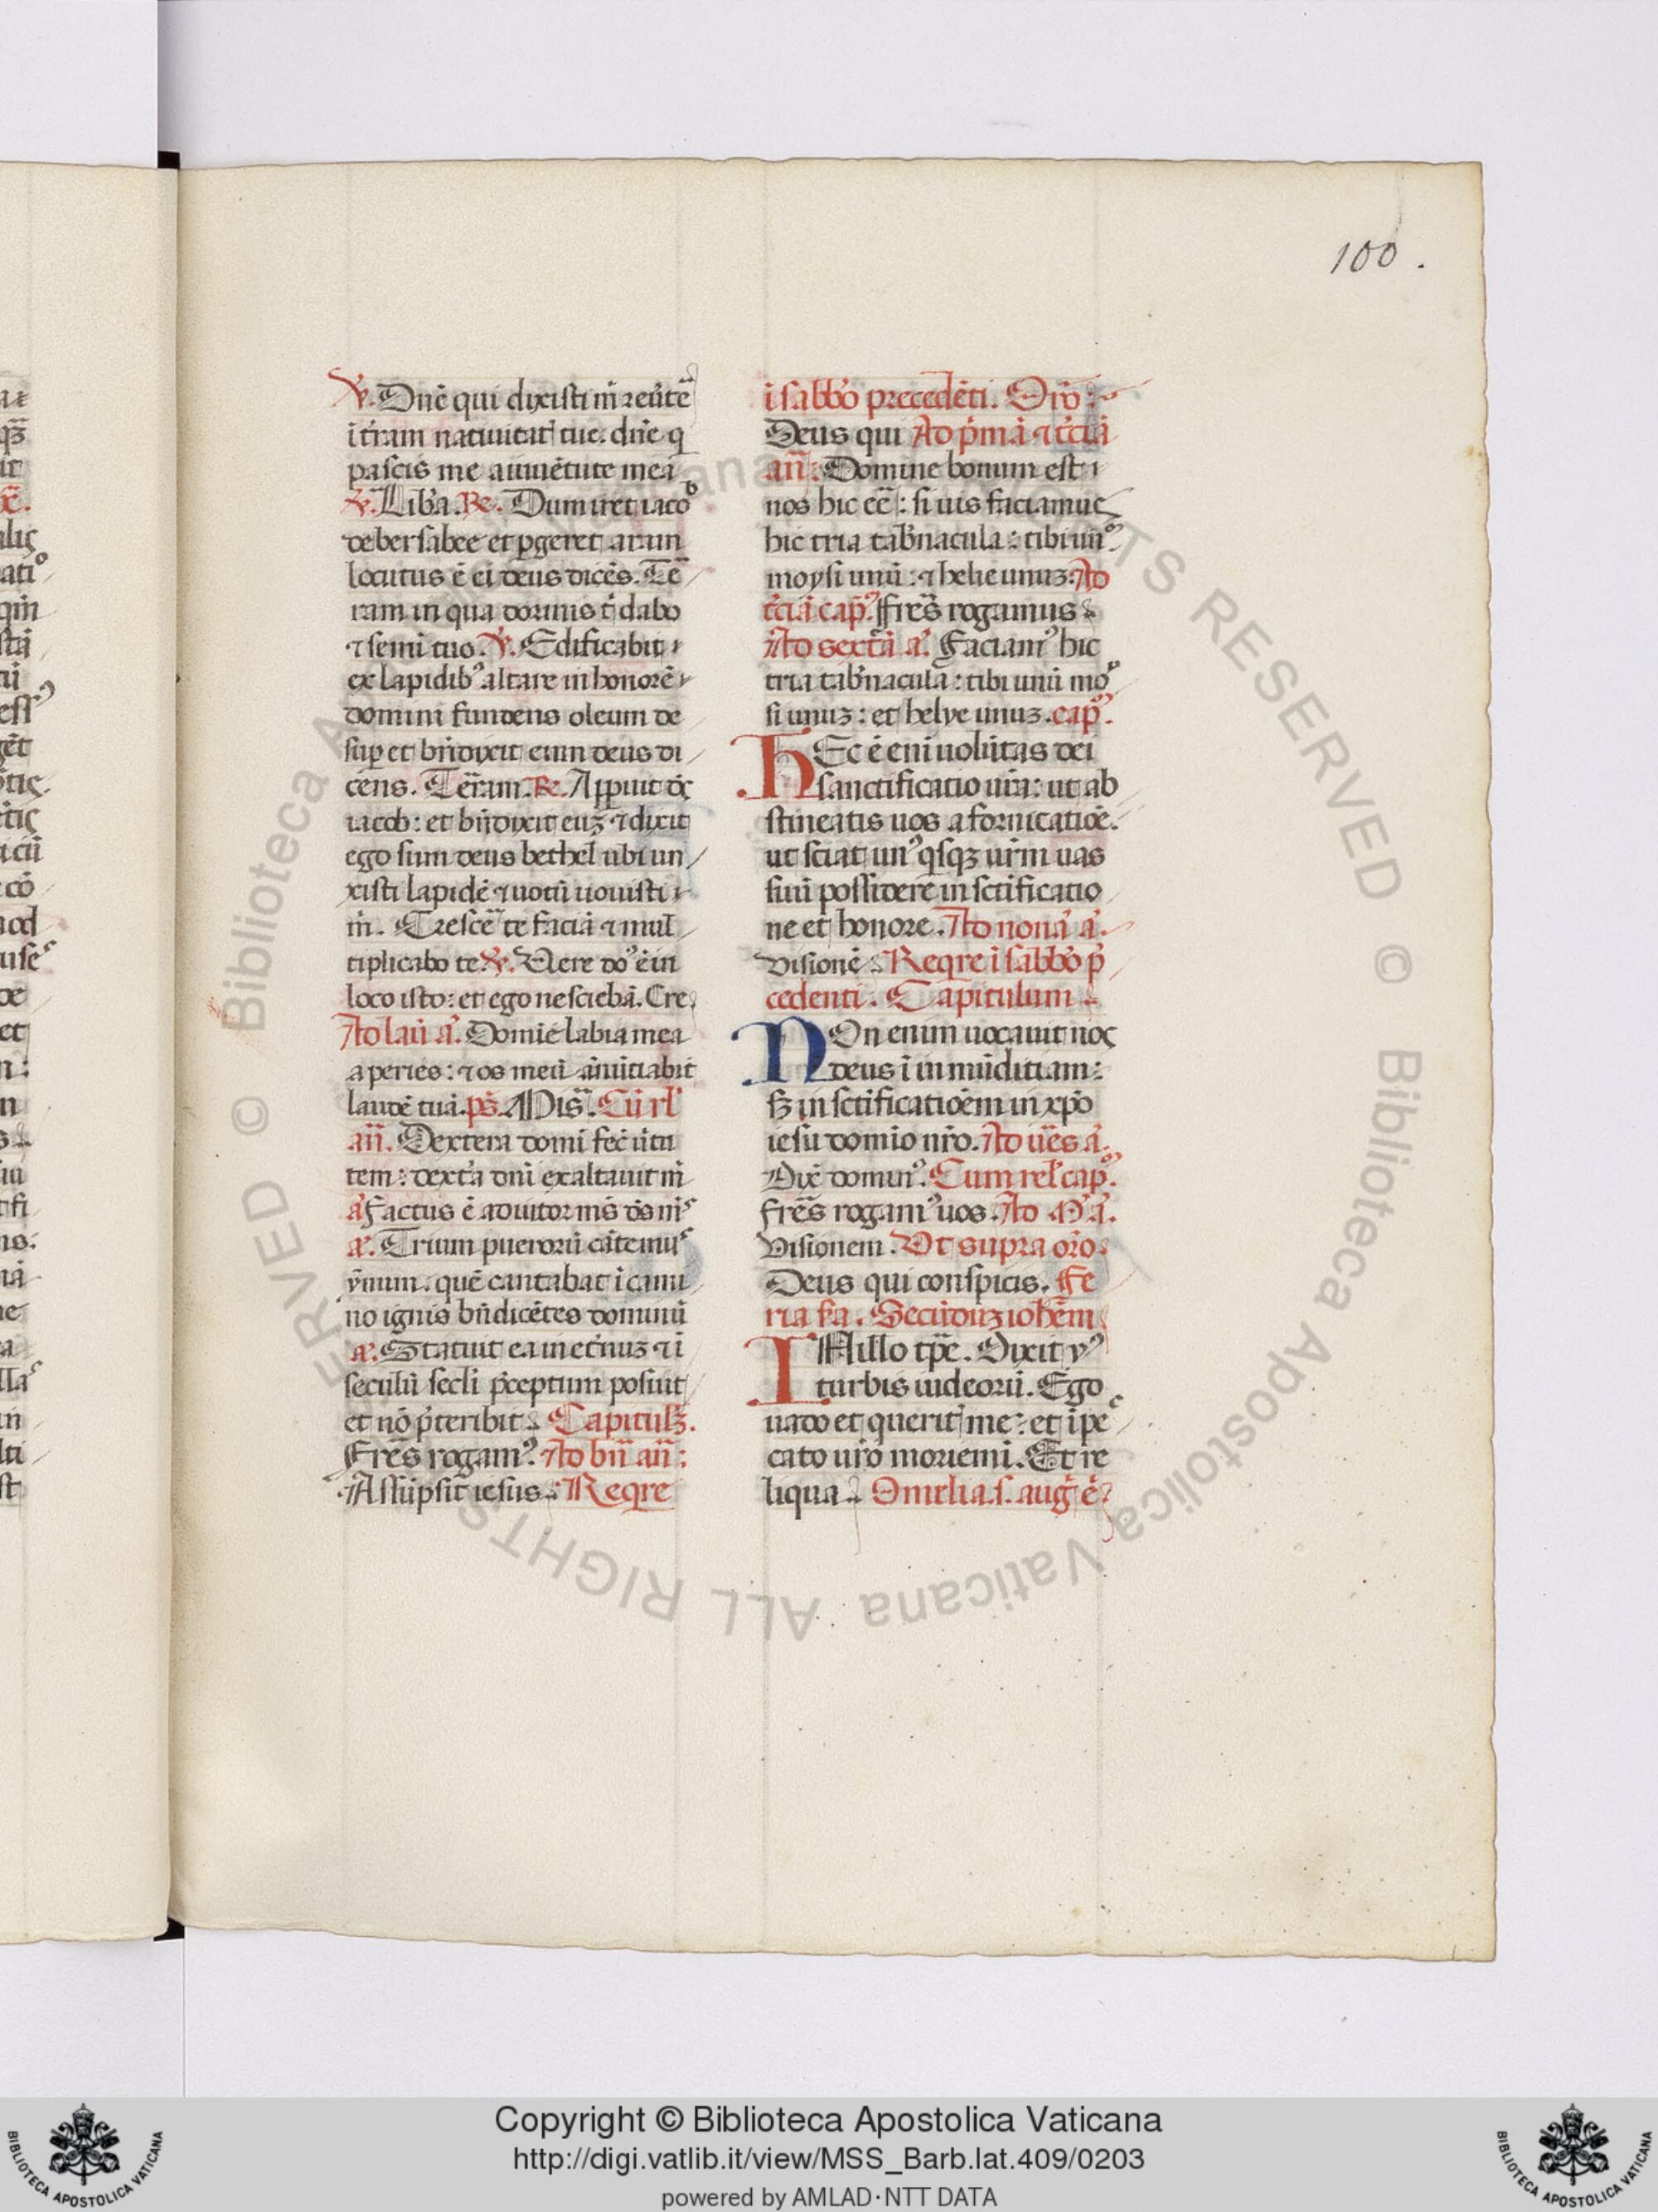 100.
℣. Dnē qui dixisti m̄ reũte
ī t̃ram natiuitat tue. dñe q
pascis me aiuuētute mea
℣. Liba. ℞. Dum iret iacob
de bersabee et ꝑgeret aram
locutus ē ei deus dicēs. Te
ram in qua dormis t dabo
⁊ semi tuo. ℣. Edificabit
ex lapidibꝰ altare in honorē
domini fundens oleum de
sup et bn̄dixit eum deus di
cens. Terram. ℞. Apparuit ds
iacob: et bn̄dixit euȝ ⁊ dixit
ego sum deus bethel ubi un
xisti lapidē ⁊ uotū uouisti
m̄. Cresce te faciā ⁊ mul
tiplicabo te. ℣. Uere doꝰ ē in
loco isto: et ego nesciebā. Cre.
Ad lau a. Domie labia mea
aperies: ⁊ os meū anūtiabit
laudē tuā. ps. Mis. Cū rl
an̄. Dextera domi fec uitu
tem: dexta dni exaltauit m
a Factus ē adiutor ms ds mꝰ
a. Trium puerorū cātemus
ymnum. quē cantabat ī cami
no ignis bn̄dicētes dominū
a. Statuit ea in et̃nuȝ ⁊ ī
seculū secli p̄ceptum posuit
et nō p̄teribit. Capitulȝ.
Fres rogamꝰ. Ad bn̄ an̄:
Assūpsit iesus. Reqre
ī sabbo precedēti. Oro
Deus qui Ad p̃mā ⁊ t̃ciā
an̄. Domine bonum est
nos hic eē: si uis faciamus
hic tria tab̃nacula: tibi unꝰ
moysi unū: ⁊ helie unuȝ: Ad
t̃ciā cap. Fres rogamus
Ad sextā a. Faciamꝰ hic
tria tab̃nacula: tibi unū mo
si unuȝ: et helye unuȝ. cap.
HEc ē eni uolūtas dei
sanctificatio ura: ut ab
stineatis uos a fornicatiōe.
ut sciat unꝰ qsqȝ urm uas
suū possidere in sctificatio
ne et honore. Ad nonā a.
Visionē. Reqre ī sabbo p̄
cedenti. Capitulum
NOn enim uocauit nos
deus ī inmūditiam:
sȝ in sctificatiōem in xpo
iesu domio nro. Ad ues a.
Dixē dominꝰ. Cum rel cap.
fres rogamꝰ uos. Ad M a.
Visionem. Ut supra oro
Deus qui conspicis. Fe
ria ẜa. Secūduȝ iohem
IN illo tpe. Dixit yꝰ
turbis iudeorū. Ego
uado et querit me: et ī pec
cato uro moriemi. Et re
liqua. Omelia. s. aug e
© Biblioteca Apostolica Vaticana ALL RIGHTS RESERVED
Copyright © Biblioteca Apostolica Vaticana
http://digi.vatlib.it/view/MSS_Barb.lat.409/0203
powered by AMLAD·NTT DATA
BIBLIOTECA APOSTOLICA VATICANA
BIBLIOTECA APOSTOLICA VATICANA